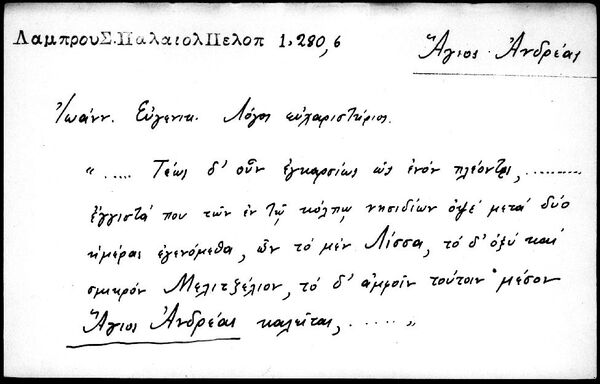 ΛαμπρουΣ.ΠαλαιολΠελοπ 1,280,6
Ἅγιος Ἀνδρέας
Ἰωάνν. Εὐγενικ. Λόγος εὐχαριστήριος.
"..... Τέως δ' οὖν ἐγκαρσίως ὡς ἐνόν πλέοντες, ..........
ἔγγιστά που τῶν ἐν τῷ κόλπῳ νησιδίων ὀψέ μετά δύο
ἡμέρας ἐγενόμεθα, ὧν τό μέν Λίσσα, τό δ' ὀξύ καί
σμικρόν Μελιτζέλιον, τό δ' ἀμφοῖν τούτοιν μέσον
Ἅγιος Ἀνδρέας καλεῖται, ..... "